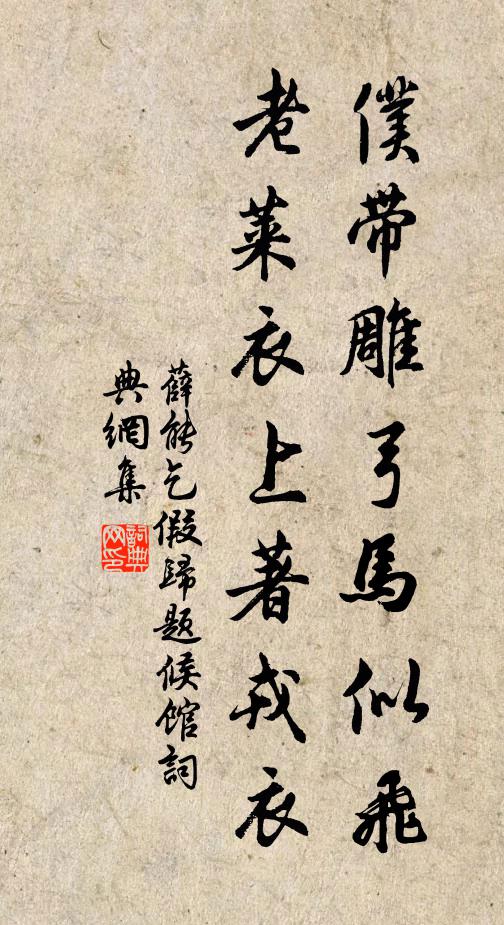 僕帶雕弓馬似飛
老萊衣上著戎衣
薛能乞假歸題候館詞
典網集
詞典
网印